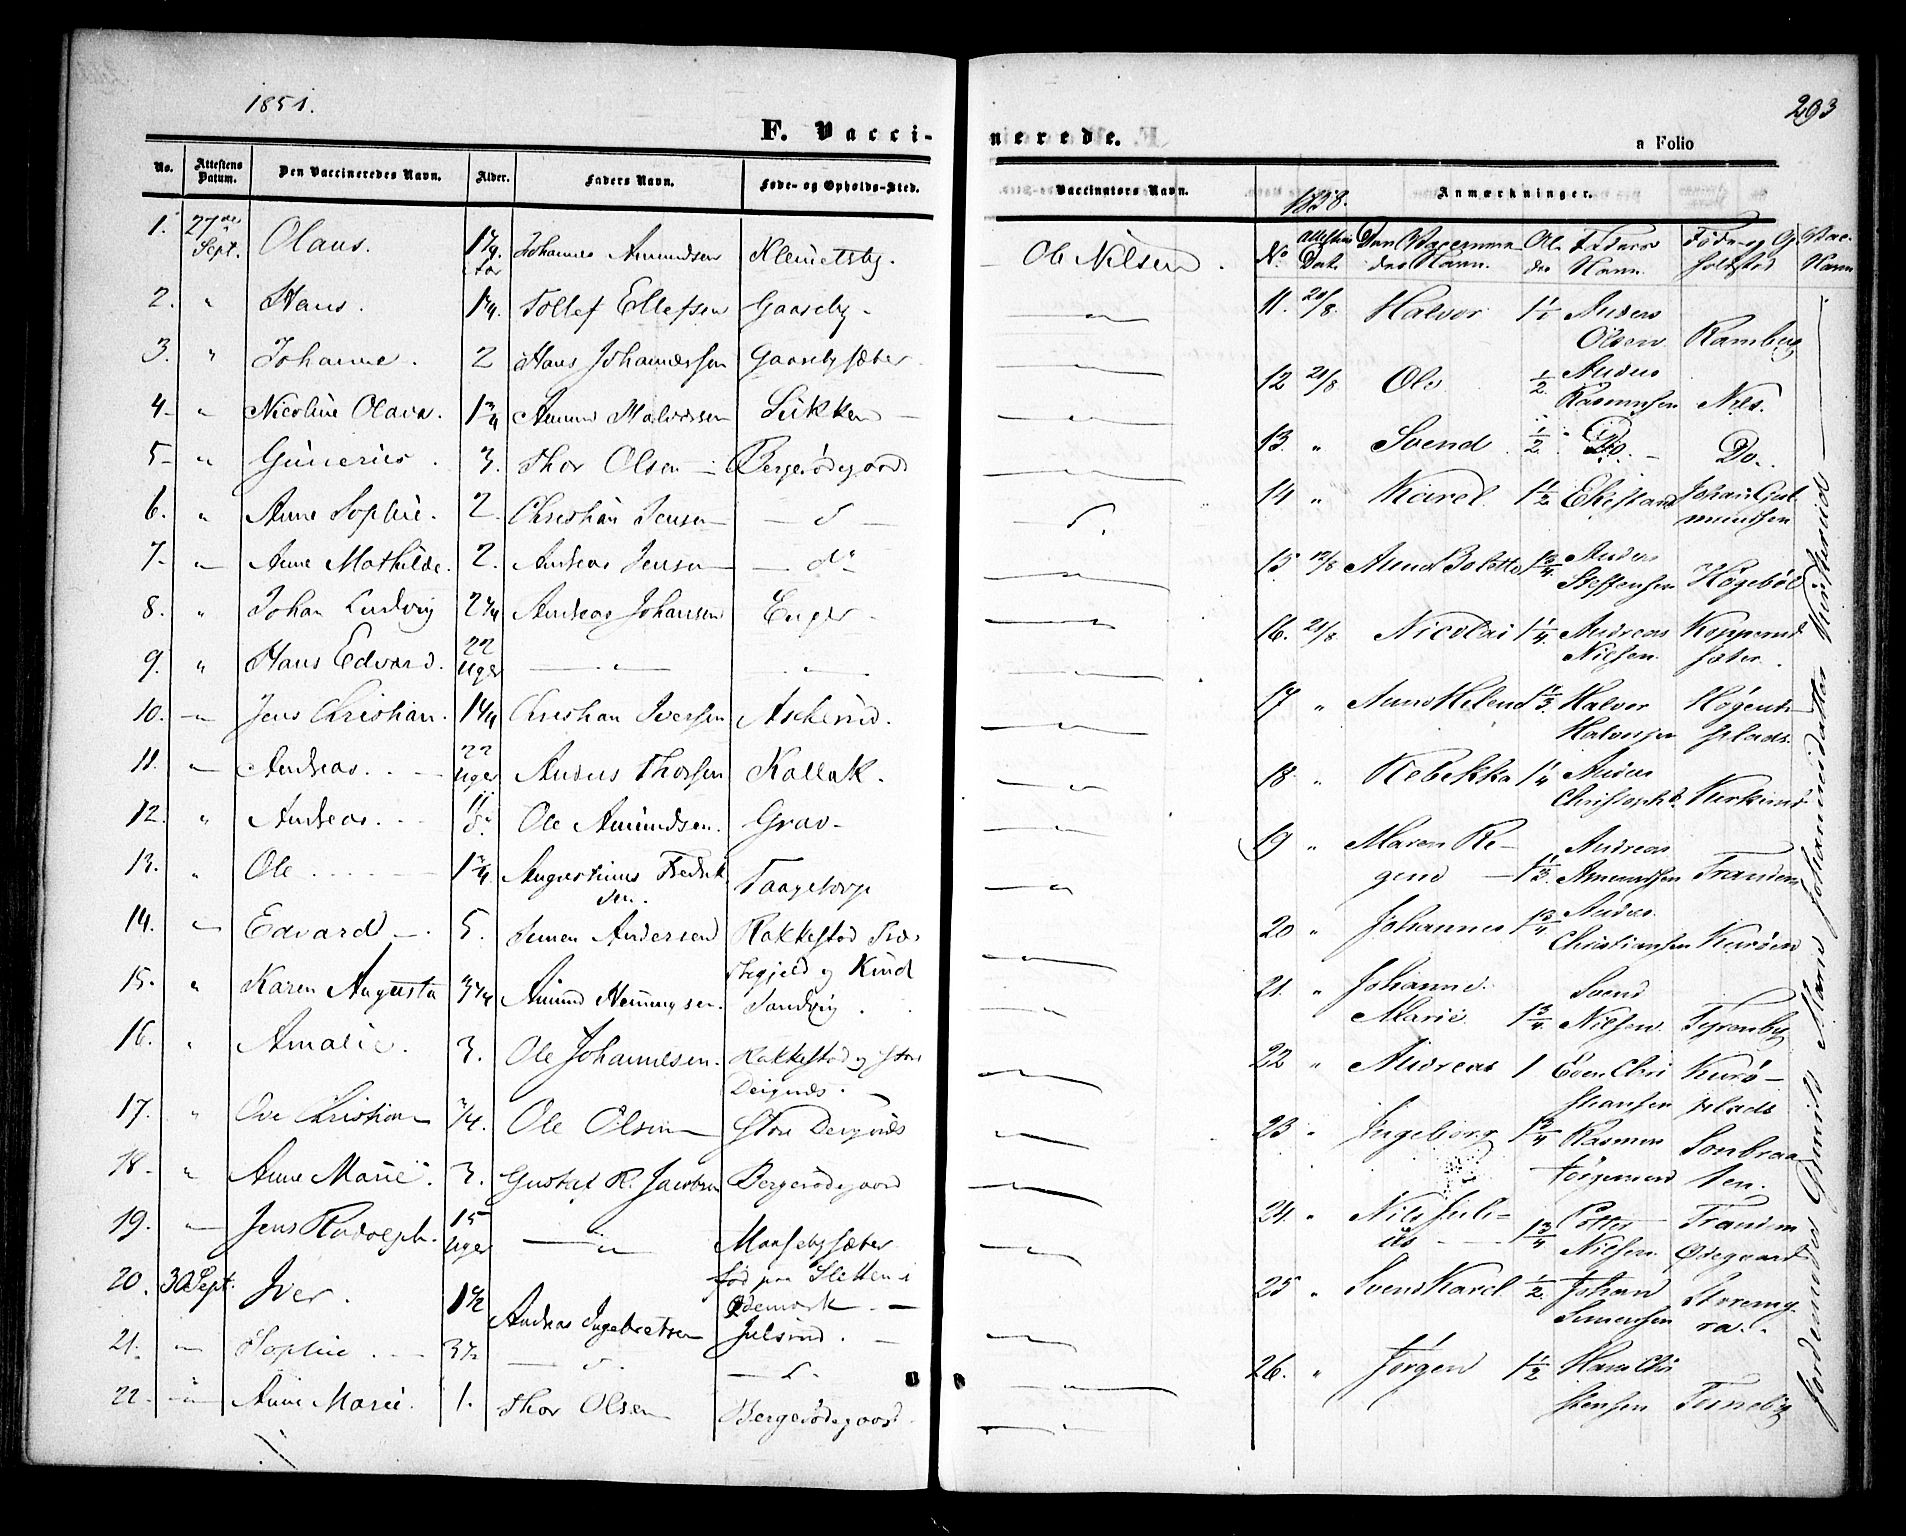 1851.
293
F. Vacci-
nerede.
a Folio
No.
Attestens Datum.
Den Vaccineredes Navn.
Alder.
Faders Navn.
Føde- og Opholds-Sted.
Vaccinators Navn.
Anmærkninger.
1. 27de Sept. Olaus. Johannes Amundsen Klemetsby. Ole Nilsen.
2. " Hans. 1 1/4 Tollef Ellefsen Gaaseby
3. " Johanne. 2 Hans Johannessen Gaasebysæter
4 " Nicoline Olava. 1 3/4 Amund Halvorsen Sikken
5 " Gunerius. 3. Thor Olsen Bergerødegaard
6. " Anne Sophie. 2. Christian Jensen
7. " Anne Mathilde. 2. Andreas Jensen do
8. " Johan Ludvig Andreas Johansen Enger
9. " Hans Edvard. 22 Uger
10. " Jens Christian. Christian Iversen Askerud.
11. " Andreas. 22 Uger Anders Thorsen Kollak.
12. " Andreas. Ole Amundsen. Grav
13. " Ole Augustinus Fredrik
sen. Taagetorp
14. " Edvard 5. Simen Andersen Rakkestad Præ
stegjeld og Kind
15. " Karen Augusta Amund Hemmingsen. Sandvig.
16. " Amalie. 3. Ole Johannesen. Rakkestad og Store
Deignæs.
17. " Ove Christian Ole Olsen Store Deignæs
18. " Anne Marie. 3. Gustav R. Jacobsen Bergerødegaard
19. " Jens Rudolph. 15 Uger Maasebysæter
20. 30 Sept. Iver. 1 1/2 Andreas Ingebretsen født paa Sletten i
Ødemark.
Julsrud.
21. " Sophie 3 1/2
22. " Anne Marie. 1. Thor Olsen Bergerødegaard
1858.
No Attestens Dato Den Vaccine
des Navn. Al
der Faders
Navn. Føde- og O
holdsted Vac.
Navn
11. 20/8. Halvor 1 1/1 Anders
Olsen Ramberg
12 21/8 Ole 1/2. Anders
Rasmussen Næs.
13. " Svend 1/2 Do. Do.
14 " Karel 1 1/2 Johan Gul
mundsen
15 12/8 Anne Bolette 1 3/4 Anders
Steffensen Høgebøl
16. 21/8 Nicolai 1 1/4 Andreas
Nilsen. Kopperud
sæter.
17 " Anne Helene Halvor
Halvorsen Høgenes
plads.
18 " Rebekka 1 1/4 Anders
Christoph. Kurkerud
19 " Maren Re-
gine Andreas
Amundsen Tranden
20 " Johannes 1 3/4 Anders
Christiansen Kurøen
21. " Johanne
Marie. 1 3/4 Svend
Nilsen. Tyrenby
22 " Andreas 1 Even Chri
stiansen Kurø-
plads
23 " Ingeborg 1 3/4 Rasmus
Jørgensen Sonbraa
ten.
24. " Nils Juli-
us 1 3/4 Petter
Nilsen. Tranden
Ødegaard
25 " Svend Karel 1/2. Johan
Simensen Strøemg
ra.
26. " Jørgen 1 1/2 Hans Chri
stensen Tuneby
Jordemoder Gunild Marie Johannesdatter